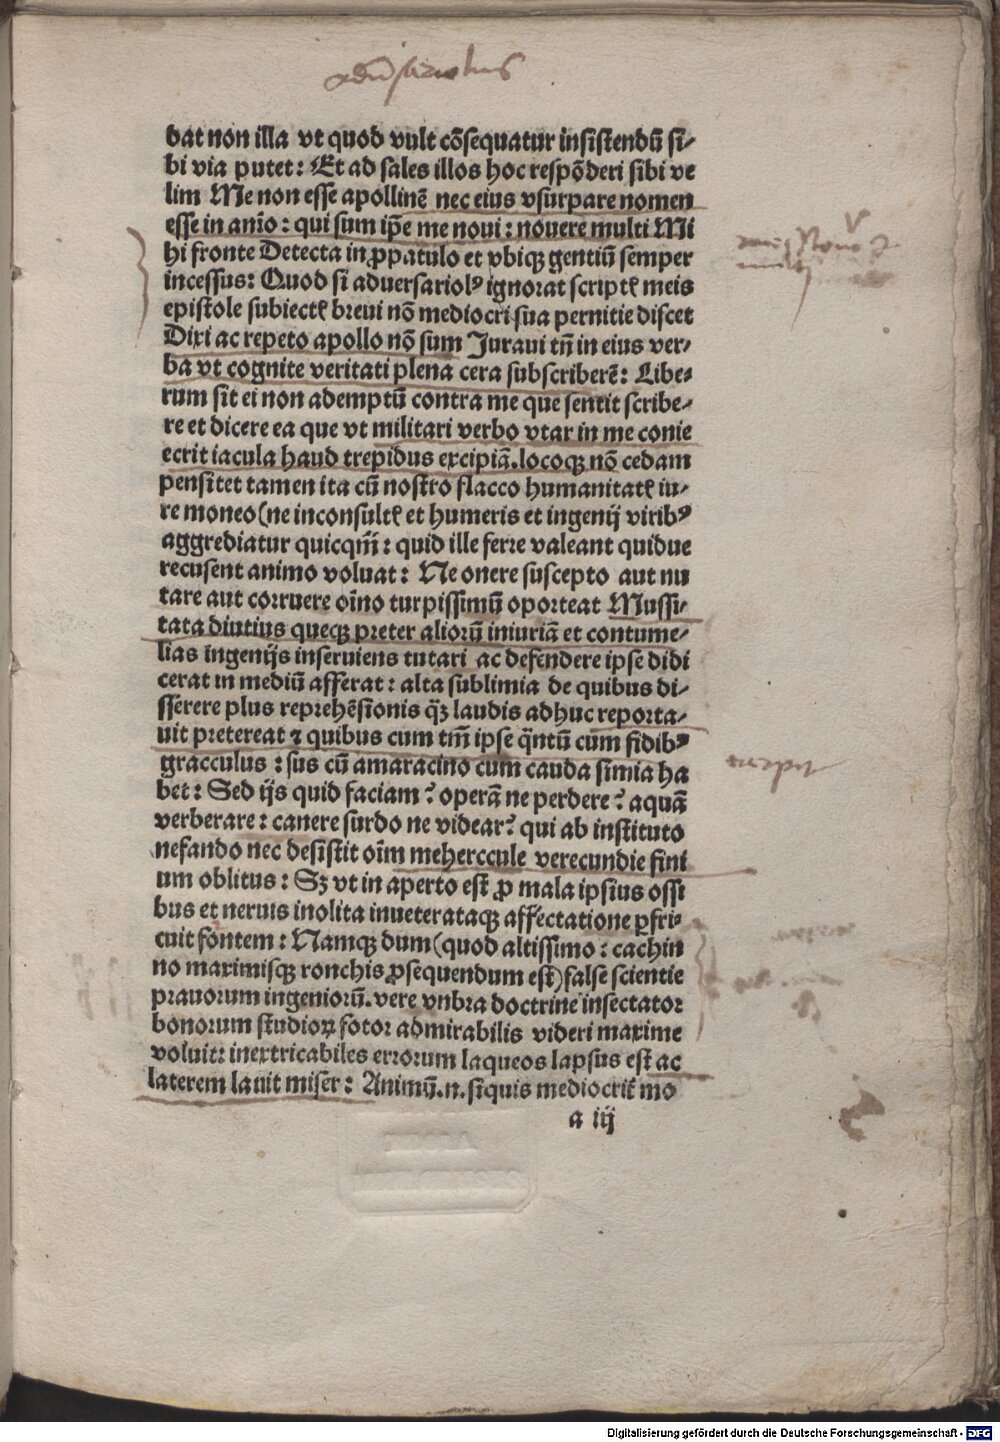 dat non illa vt quod vult cōsequatur insistendū si⸗
bi via putet: Et ad sales illos hoc respōderi sibi ve
lim Me non esse apollinē nec eius vsurpare nomen
esse in anīo: qui sum ip̄e me noui: nouere multi Mi
hi fronte Detecta in ꝓpatulo et vbiqꝫ gentiū semper
incessus: Quod si aduersariolꝰ ignorat scriptꝭ meis
epistole subiectꝭ breui nō mediocri sua pernitie discet
Dixi ac repeto apollo nō sum Juraui tn̄ in eius ver⸗
ba vt cognite veritati plena cera subscriberē: Libe⸗
rum sit ei non ademptū contra me que sentit scribe⸗
re et dicere ea que vt militari verbo vtar in me conie
ecrit iacula haud trepidus excipiā.locoqꝫ nō cedam
pensitet tamen ita cū nostro flacco humanitatꝭ iu⸗
re moneo(ne inconsultꝭ et humeris et ingenij viribꝰ
aggrediatur quicqm̄: quid ille ferre valeant quidue
recusent animo voluat: Ne onere suscepto aut nu
tare aut corruere oīno turpissimū oporteat Mussi⸗
tata diutius queqꝫ preter aliorū iniuriā et contume⸗
lias ingenijs inseruiens tutari ac defendere ipse didi
cerat in mediū afferat: alta sublimia de quibus di⸗
sserere plus reprehēsionis q̄ꝫ laudis adhuc reporta⸗
uit pretereat ⁊ quibus cum tm̄ ipse q̄ntū cum fidibꝰ
gracculus: sus cū amaracino cum cauda simia ha
bet: Sed ijs quid faciam? operā ne perdere? aquā
verberare: canere surdo ne videar? qui ab instituto
nefando nec desistit oīm meherccule verecundie fini
um oblitus: Sꝫ vt in aperto est ꝓ mala ipsius ossi
bus et neruis inolita inueterataqꝫ affectatione ꝑfri⸗
cuit fontem: Namqꝫ dum(quod altissimo: cachin
no maximisqꝫ ronchis ꝓsequendum est)false scientie
prauorum ingeniorū.vere vnbra doctrine insectator
bonorum studioꝝ fotor admirabilis videri maxime
voluit: inextricabiles errorum laqueos lapsus est ac
laterem lauit miser: Animū.n. siquis mediocrit̄ mo
a iij
carpit
Digitalisierung gefördert durch die Deutsche Forschungsgemeinschaft - DFG